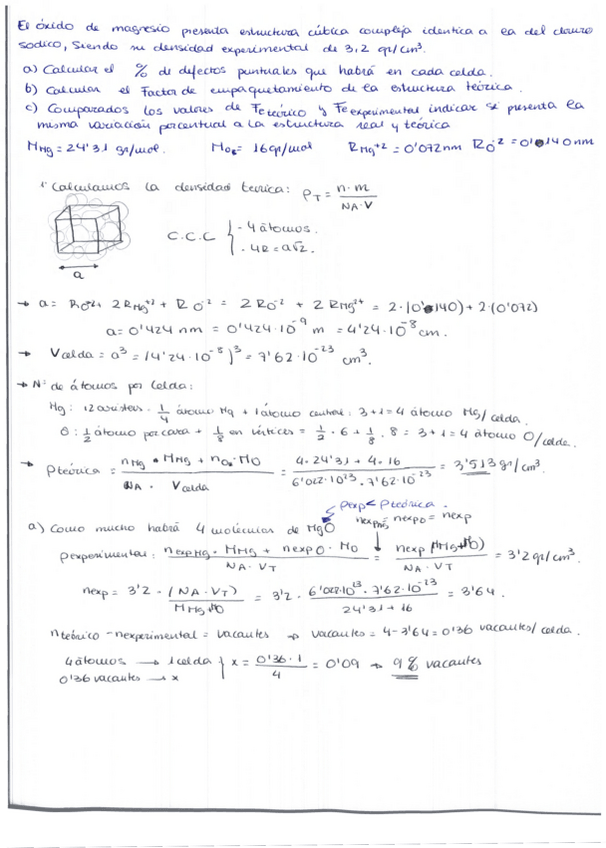 El óxido de magnesio presenta estructura cúbica compleja identica a la del cloruro
sodico, Siendo su densidad experimental de 3,2 gr/cm³.
a) Calcular el % de defectos puntuales que habrá en cada celda.
b) Calcular el Factor de empaquetamiento de la estructura teórica.
c) Comparados los valores de Fe teórico y Fe experimental indicar si presenta la
misma variación porcentual a la estructura real y teórica
M Mg = 24'31 gr/mol. M O₂ = 16 gr/mol R Mg⁺² = 0'072 nm R O⁻² = 0'140 nm
1º Calculamos la densidad teorica: ρT = n·m / NA·V
C.C.C { - 4 átomos.
- 4R = a√2.
a
→ a = R O⁻² + 2 R Mg⁺² + R O⁻² = 2 R O⁻² + 2 R Mg²⁺ = 2·(0'140) + 2·(0'072)
a = 0'424 nm = 0'424·10⁻⁹ m = 4'24·10⁻⁸ cm.
→ V celda = a³ = (4'24·10⁻⁸)³ = 7'62·10⁻²³ cm³.
→ Nº de átomos por Celda:
Mg: 12 aristas · 1/4 átomo Mg + 1 átomo central: 3+1=4 átomo Mg/celda.
O: 1/2 átomo por cara + 1/8 en vértices = 1/2 · 6 + 1/8 · 8 = 3+1=4 átomo O/celda.
→ ρ teórica = nMg · MMg + nO₂ · MO / NA · Vcelda = 4·24'31 + 4·16 / 6'022·10²³ · 7'62·10⁻²³ = 3'513 gr/cm³.
ρexp < ρteórica.
a) Como mucho habrá 4 moléculas de MgO nexpMg = nexpO = nexp
ρexperimental: nexpMg · MMg + nexpO · MO / NA · VT = nexp (MMg+MO) / NA · VT = 3'2 gr/cm³.
nexp = 3'2 · (NA · VT) / MMg+MO = 3'2 · 6'022·10²³ · 7'62·10⁻²³ / 24'31 + 16 = 3'64.
nteórico - nexperimental = vacantes → vacantes = 4-3'64 = 0'36 vacantes/celda.
4 átomos → 1 celda } x = 0'36·1 / 4 = 0'09 → 9% vacantes
0'36 vacantes → x